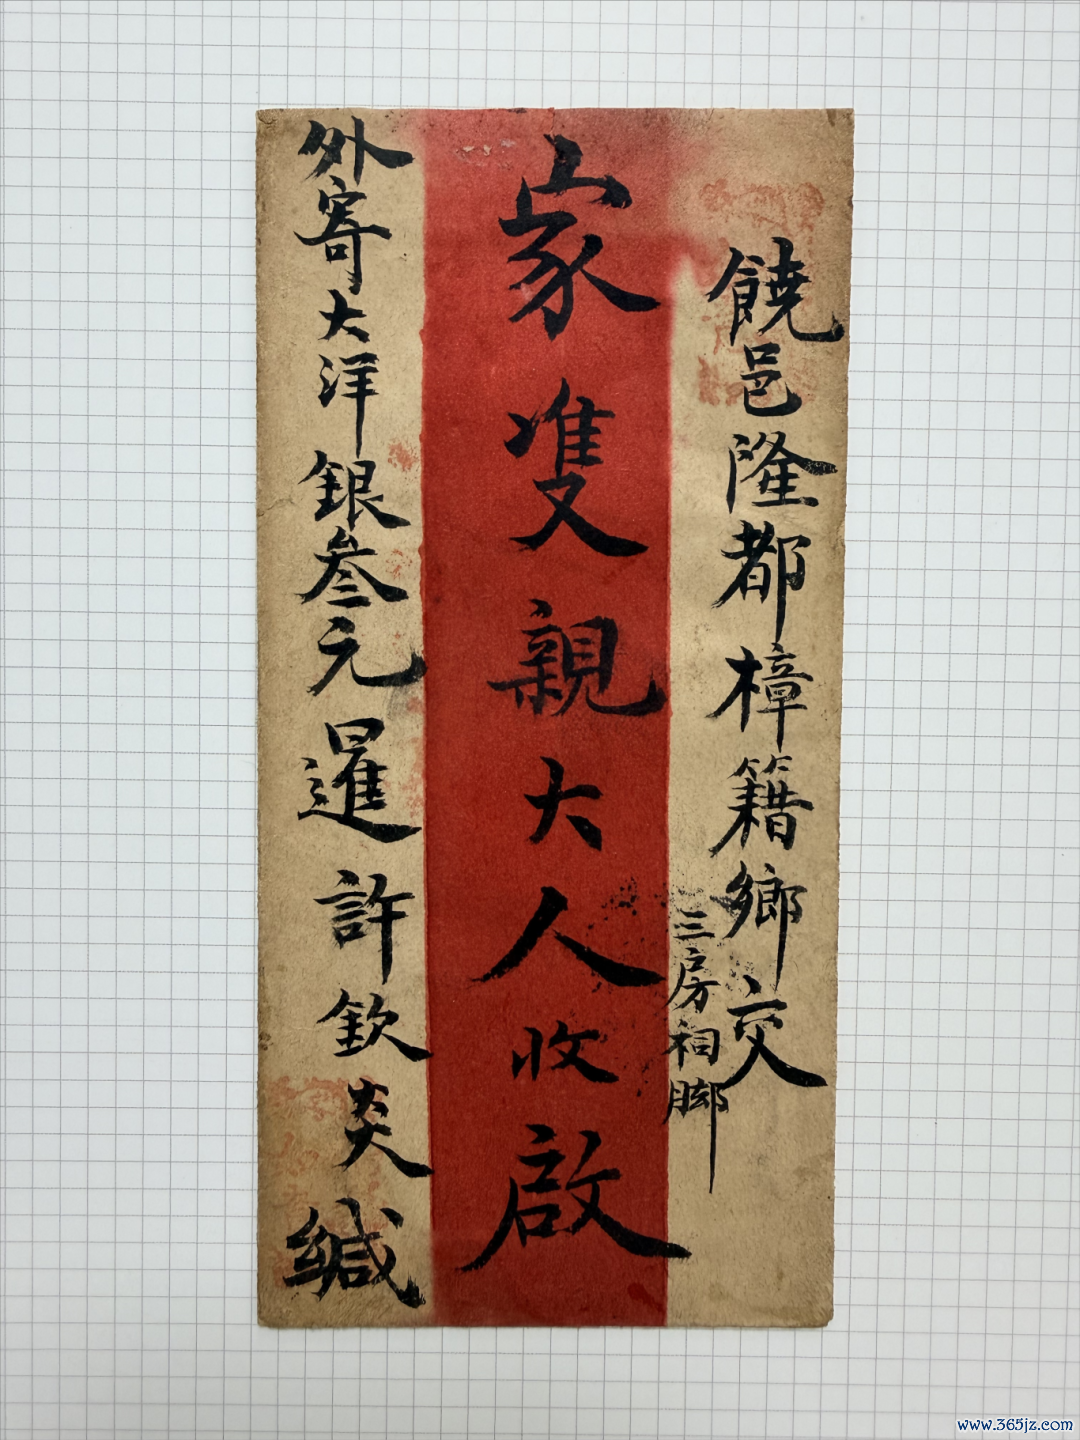 饒邑隆都樟籍鄉交
三房祠脚
家雙親大人收啟
外寄大洋銀叁元暹許欽炎緘
www.365jz.com